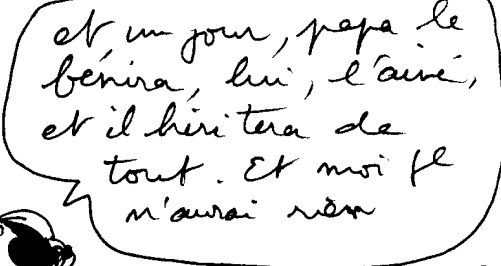 et un jour, papa le
bénira, lui, l'aîné,
et il héritera de
tout. Et moi je
n'aurai rien